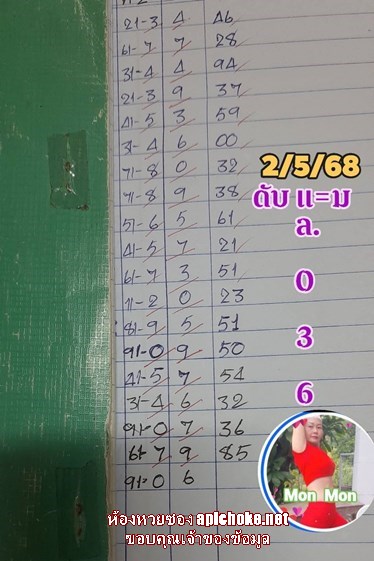 21-3 4 46
61-7 7 28
31-4 4 94
21-3 9 37
41-5 3 59
31-4 6 00
71-8 0 32
71-8 9 38
51-6 5 61
41-5 7 21
61-7 3 51
11-2 0 23
81-9 5 51
91-0 9 50
41-5 7 54
31-4 6 32
91-0 7 36
61-7 9 85
91-0 6
2/5/68
ดับ แ=ม
ล.
0
3
6
Mon Mon
ห้องหวยซอง aplchoke.net
ขอบคุณเจ้าของข้อมูล